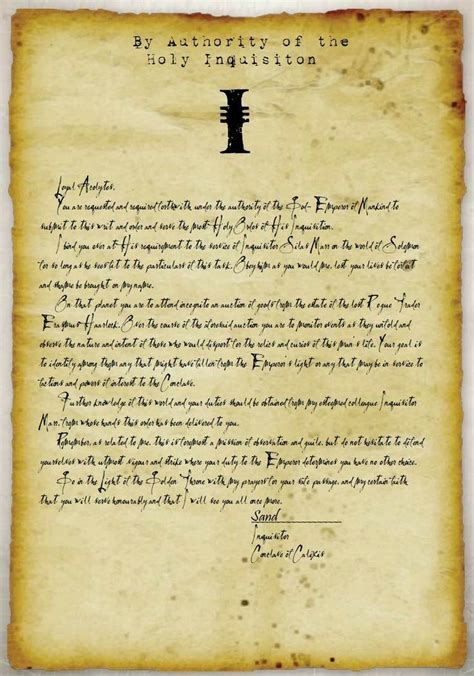 By Authority of the
Holy Inquisiton
Loyal Acolytes,
You are requested and required forthwith under the authority of the God-Emperor of Mankind to
submit to this writ and order and serve the most Holy Ordos of His Inquisition.
I bind you over at His requirement to the service of Inquisitor Silas Marr on the world of Solomon
for so long as he sees fit to the particulars of this task. Obey him as you would me, lest your lives be forfeit
and shame be brought on my name.
On that planet you are to attend incognito an auction of goods from the estate of the lost Rogue Trader
Erasmus Haarlock. Over the course of the aforesaid auction you are to monitor events as they unfold and
observe the nature and intent of those who would disport for the relics and curios of this man's life. Your goal is
to identify among them any that might have fallen from the Emperor's light or any that may be in service to
factions and powers of interest to the Conclave.
Further knowledge of this world and your duties should be obtained from my esteemed colleague Inquisitor
Marr, from whose hands this order has been delivered to you.
Remember, as related to me, this is foremost a mission of observation and guile, but do not hesitate to defend
yourselves with utmost vigour and strike where your duty to the Emperor determines you have no other choice.
Be in the Light of the Golden Throne with my prayers for your safe passage, and my certain faith
that you will serve honourably and that I will see you all once more.
Sand
Inquisitor
Conclave of Calixis